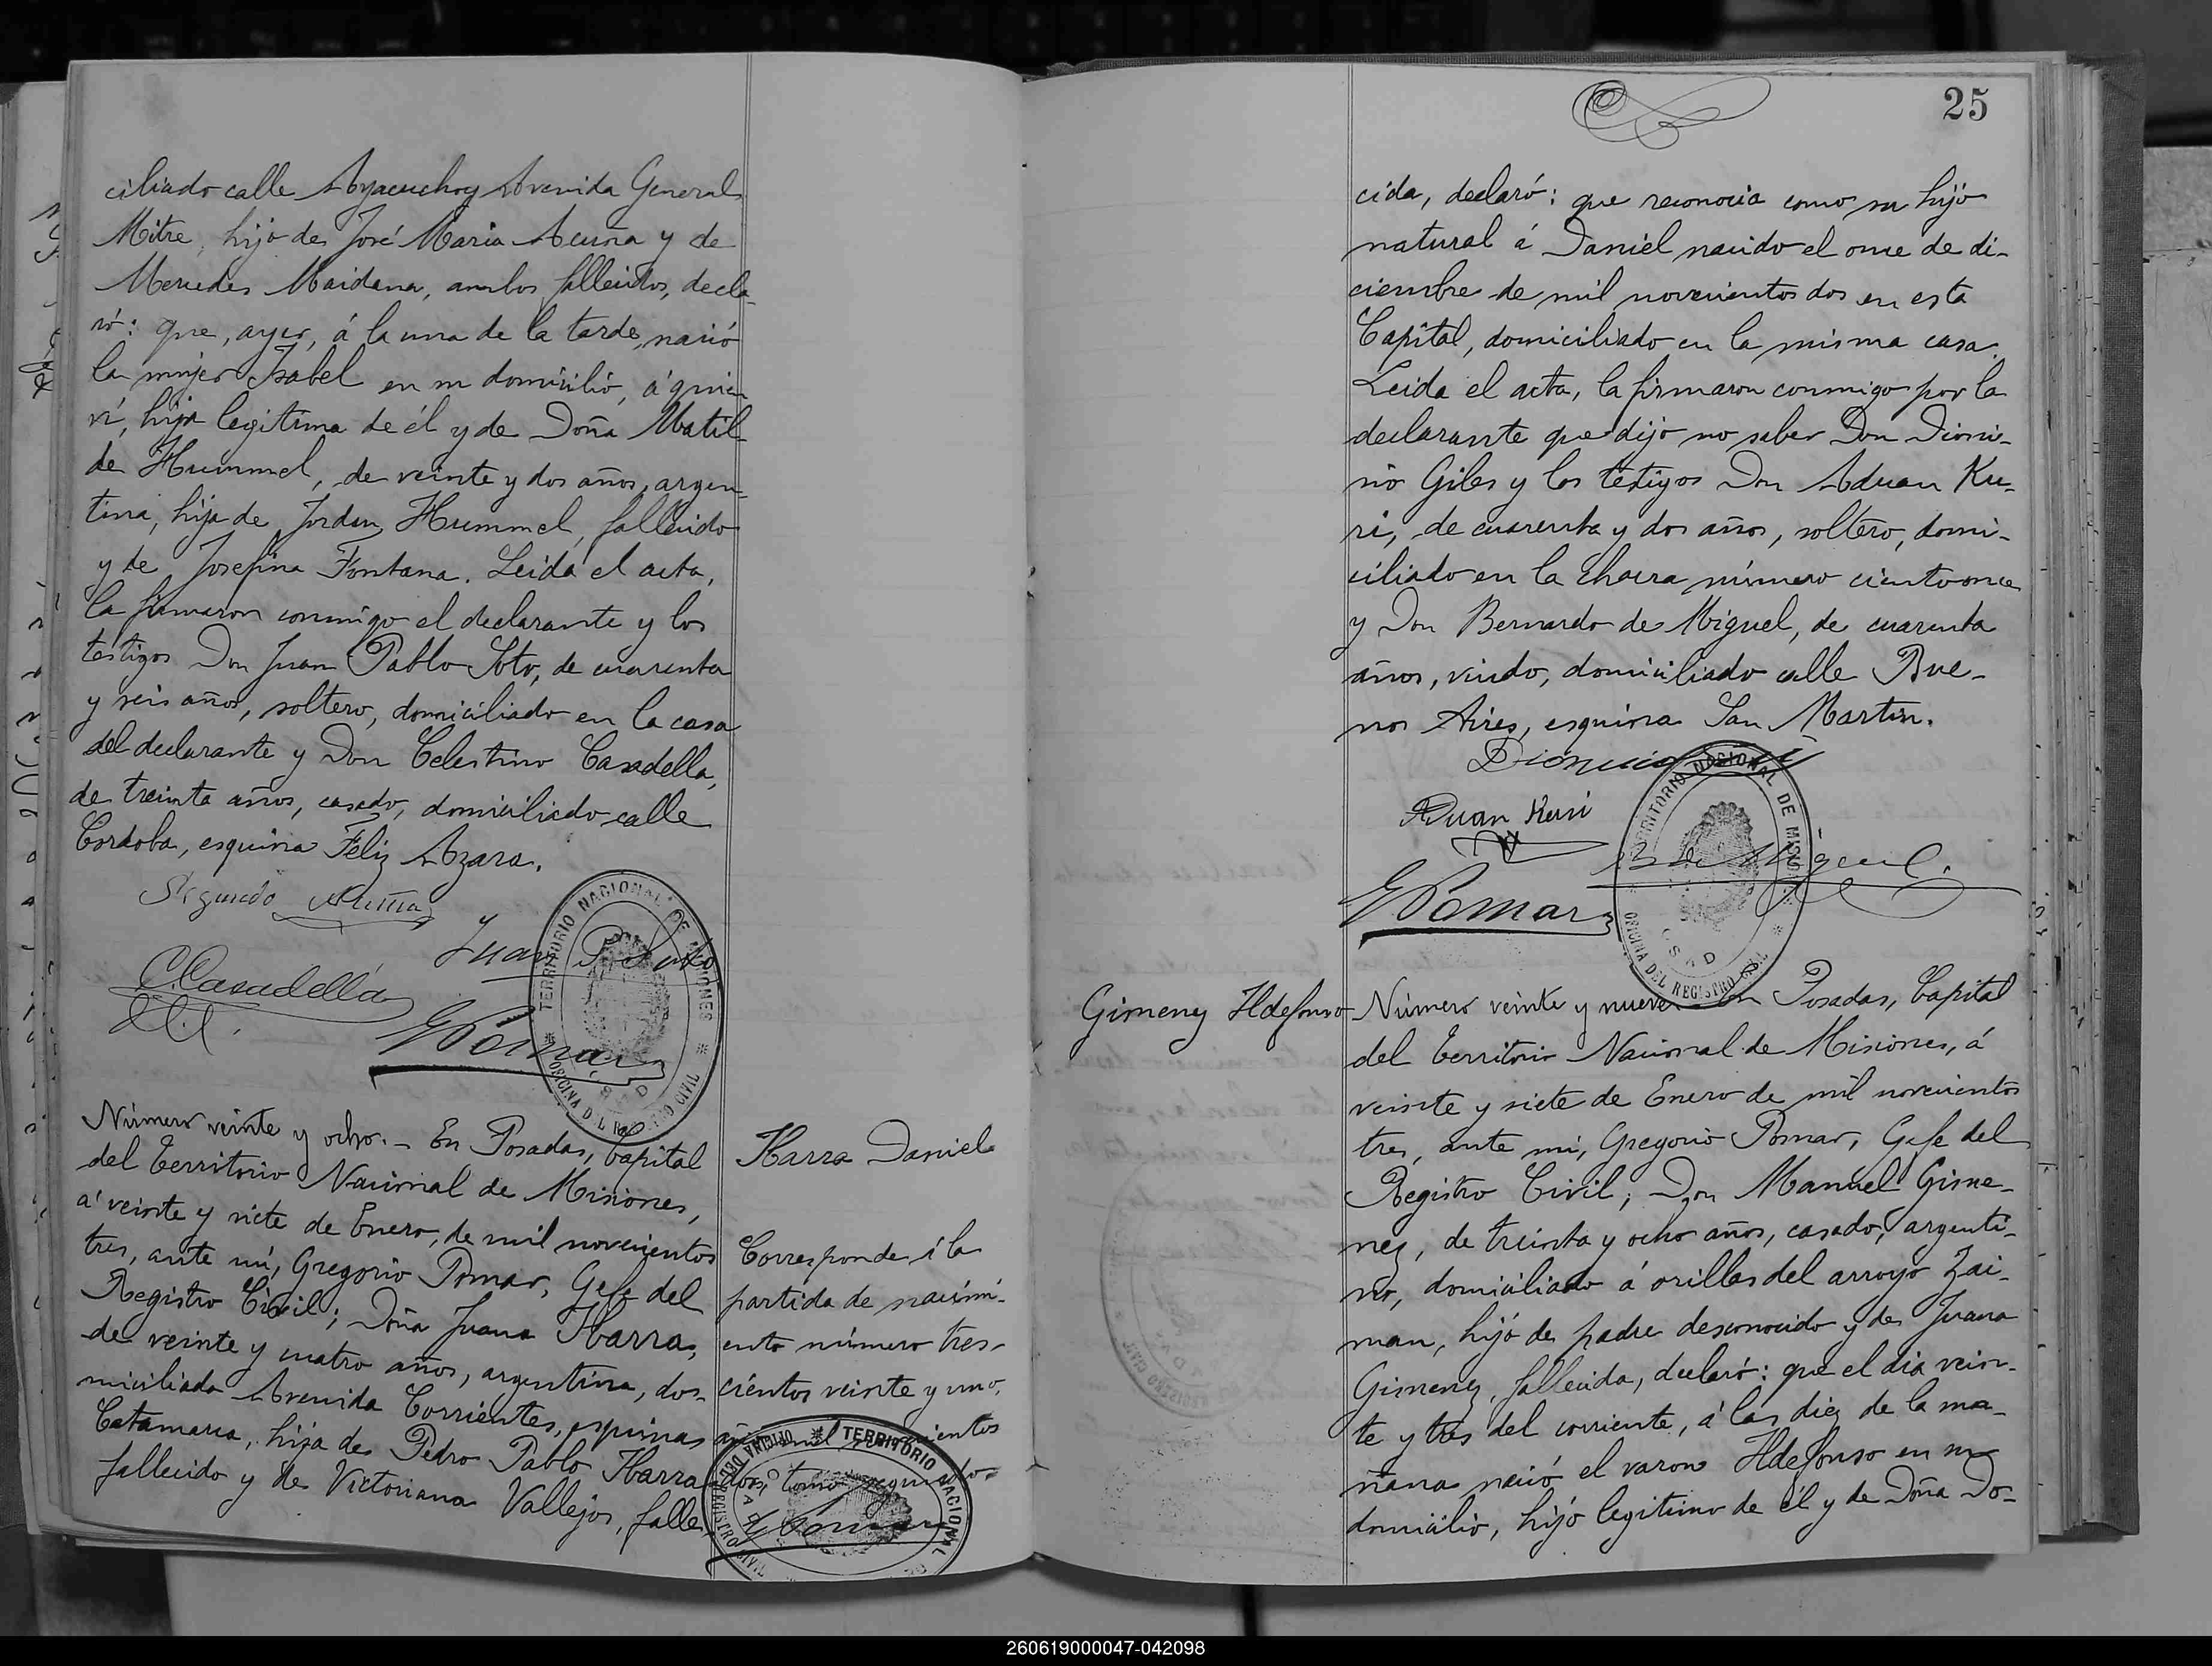 ciliado calle Ayacucho y Avenida General
Mitre, hijo de José Maria Acuña y de
Mercedes Maidana, ambos fallecidos, decla-
ró: que, ayer, á la una de la tarde, nació
la mujer Isabel en su domicilio, á quien
ví, hija legitima de él y de Doña Matil-
de Hummel, de veinte y dos años, argen-
tina, hija de Jordan Hummel, fallecido
y de Josefina Fontana. Leida el acta,
la firmaron conmigo el declarante y los
testigos Don Juan Pablo Soto, de cuarenta
y seis años, soltero, domiciliado en la casa
del declarante y Don Celestino Casadella,
de treinta años, casado, domiciliado calle
Cordoba, esquina Feliz Azara.
Segundo Acuña
Juan P. Soto
C. Casadella
GPomar
TERRITORIO NACIONAL DE MISIONES
OFICINA DEL REGISTRO CIVIL
Número veinte y ocho. - En Posadas, Capital
del Territorio Nacional de Misiones,
á veinte y siete de Enero, de mil novecientos
tres, ante mí, Gregorio Pomar, Gefe del
Registro Civil; Doña Juana Ibarra,
de veinte y cuatro años, argentina, do-
miciliada Avenida Corrientes, esquina
Catamarca, hija de Pedro Pablo Ibarra
fallecido y de Victoriana Vallejos, falle-
Ibarra Daniel
Corresponde á la
partida de nacimi-
ento número tres-
cientos veinte y uno,
año mil novecientos
dos, tomo segundo.
GPomar
TERRITORIO NACIONAL DE
OFICINA DEL REGISTRO CIVIL
25
cida, declaró: que reconocia como su hijo
natural á Daniel nacido el once de di-
ciembre de mil novecientos dos en esta
Capital, domiciliado en la misma casa.
Leida el acta, la firmaron conmigo por la
declarante que dijo no saber Don Dioni-
sio Giles y los testigos Don Aduan Ku-
ri, de cuarenta y dos años, soltero, domi-
ciliado en la chacra número ciento once
y Don Bernardo de Miguel, de cuarenta
años, viudo, domiciliado calle Bue-
nos Aires, esquina San Martin.
Dionisio
Aduan Kuri
B de Miguel.
GPomar
TERRITORIO NACIONAL DE MISIONES
OFICINA DEL REGISTRO CIVIL
Gimenez Ildefonso
Número veinte y nueve En Posadas, Capital
del Territorio Nacional de Misiones, á
veinte y siete de Enero de mil novecientos
tres, ante mí, Gregorio Pomar, Gefe del
Registro Civil; Don Manuel Gime-
nez, de treinta y ocho años, casado, argenti-
no, domiciliado á orillas del arroyo Zai-
man, hijo de padre desconocido y de Juana
Gimenez, fallecida, declaró: que el dia vein-
te y tres del corriente, á las diez de la ma-
ñana nació el varon Ildefonso en su
domicilio, hijo legitimo de él y de Doña Do-
260619000047-042098